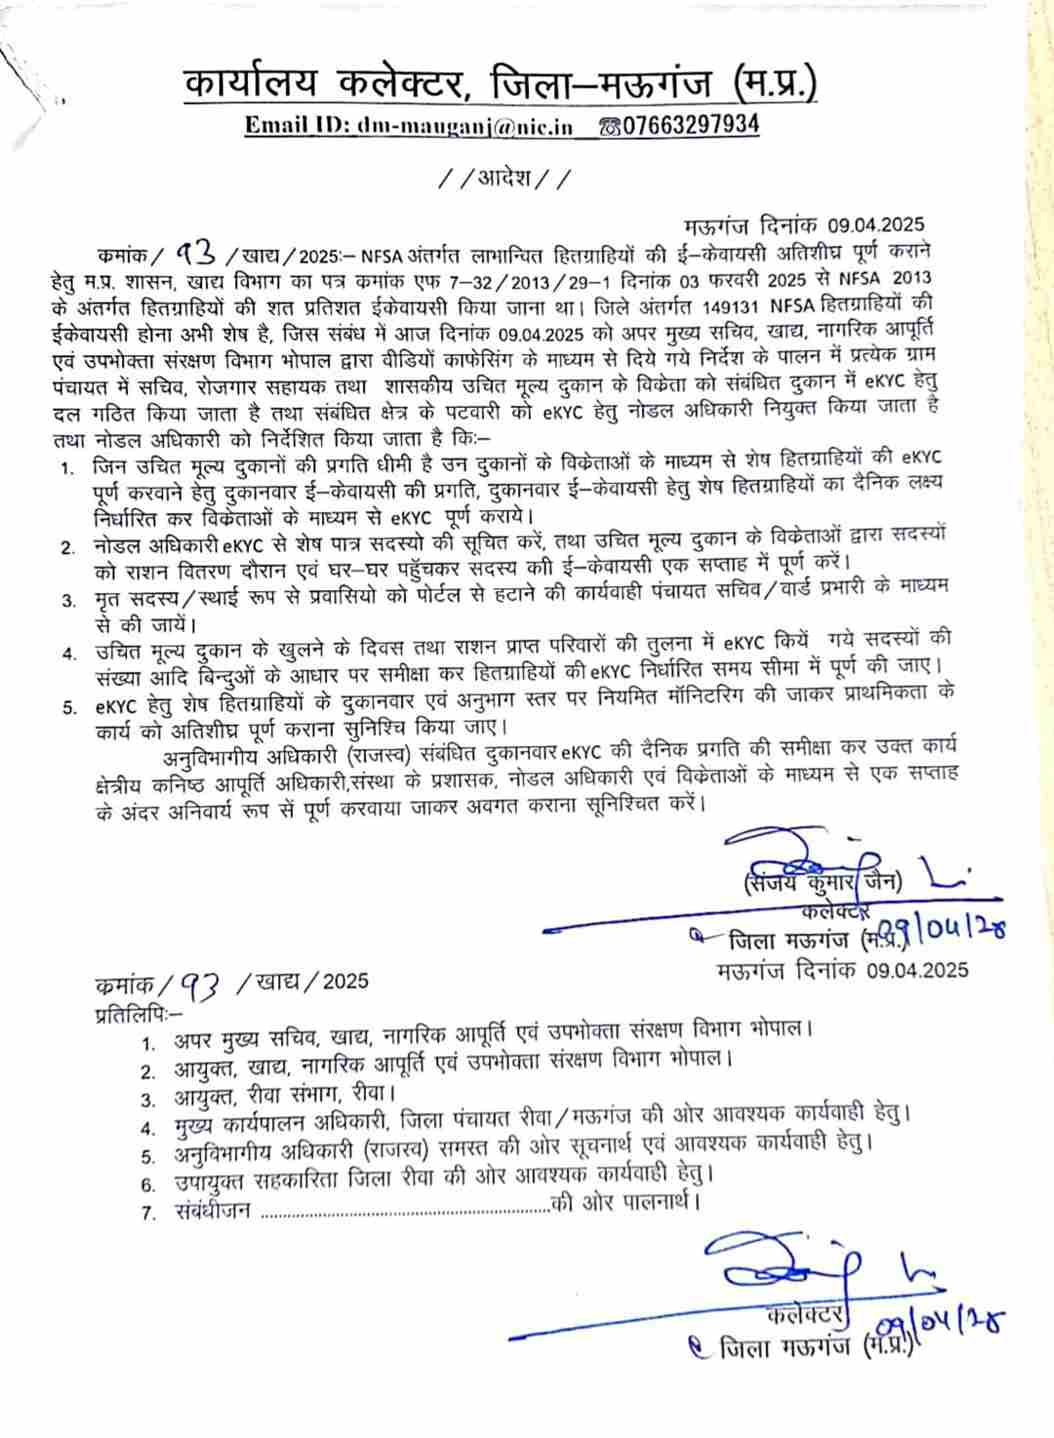 कार्यालय कलेक्टर, जिला–मऊगंज (म.प्र.)
Email ID: dm-mauganj@nic.in ☎07663297934
//आदेश//
मऊगंज दिनांक 09.04.2025
कमांक/ 93 /खाद्य/2025:– NFSA अंतर्गत लाभान्वित हितग्राहियों की ई–केवायसी अतिशीघ्र पूर्ण कराने
हेतु म.प्र. शासन, खाद्य विभाग का पत्र कमांक एफ 7–32/2013/29–1 दिनांक 03 फरवरी 2025 से NFSA 2013
के अंतर्गत हितग्राहियों की शत प्रतिशत ईकेवायसी किया जाना था। जिले अंतर्गत 149131 NFSA हितग्राहियों की
ईकेवायसी होना अभी शेष है, जिस संबंध में आज दिनांक 09.04.2025 को अपर मुख्य सचिव, खाद्य, नागरिक आपूर्ति
एवं उपभोक्ता संरक्षण विभाग भोपाल द्वारा वीडियों काफेसिंग के माध्यम से दिये गये निर्देश के पालन में प्रत्येक ग्राम
पंचायत में सचिव, रोजगार सहायक तथा शासकीय उचित मूल्य दुकान के विकेता को संबंधित दुकान में eKYC हेतु
दल गठित किया जाता है तथा संबंधित क्षेत्र के पटवारी को eKYC हेतु नोडल अधिकारी नियुक्त किया जाता है
तथा नोडल अधिकारी को निर्देशित किया जाता है कि:–
1. जिन उचित मूल्य दुकानों की प्रगति धीमी है उन दुकानों के विकेताओं के माध्यम से शेष हितग्राहियों की eKYC
पूर्ण करवाने हेतु दुकानवार ई–केवायसी की प्रगति, दुकानवार ई–केवायसी हेतु शेष हितग्राहियों का दैनिक लक्ष्य
निर्धारित कर विकेताओं के माध्यम से eKYC पूर्ण कराये।
2. नोडल अधिकारी eKYC से शेष पात्र सदस्यो की सूचित करें, तथा उचित मूल्य दुकान के विकेताओं द्वारा सदस्यों
को राशन वितरण दौरान एवं घर–घर पहुँचकर सदस्य काी ई–केवायसी एक सप्ताह में पूर्ण करें।
3. मृत सदस्य/स्थाई रूप से प्रवासियो को पोर्टल से हटाने की कार्यवाही पंचायत सचिव/वार्ड प्रभारी के माध्यम
से की जायें।
4. उचित मूल्य दुकान के खुलने के दिवस तथा राशन प्राप्त परिवारों की तुलना में eKYC कियें गये सदस्यों की
संख्या आदि बिन्दुओं के आधार पर समीक्षा कर हितग्राहियों की eKYC निर्धारित समय सीमा में पूर्ण की जाए।
5. eKYC हेतु शेष हितग्राहियों के दुकानवार एवं अनुभाग स्तर पर नियमित मॉनिटरिग की जाकर प्राथमिकता के
कार्य को अतिशीघ्र पूर्ण कराना सुनिश्चि किया जाए।
अनुविभागीय अधिकारी (राजस्व) संबंधित दुकानवार eKYC की दैनिक प्रगति की समीक्षा कर उक्त कार्य
क्षेत्रीय कनिष्ठ आपूर्ति अधिकारी,संस्था के प्रशासक, नोडल अधिकारी एवं विकेताओं के माध्यम से एक सप्ताह
के अंदर अनिवार्य रूप सें पूर्ण करवाया जाकर अवगत कराना सुनिश्चित करें।
(संजय कुमार जैन)
कलेक्टर
जिला मऊगंज (म.प्र.) 09/04/25
कमांक/ 93 /खाद्य/2025
मऊगंज दिनांक 09.04.2025
प्रतिलिपिः–
1. अपर मुख्य सचिव, खाद्य, नागरिक आपूर्ति एवं उपभोक्ता संरक्षण विभाग भोपाल।
2. आयुक्त, खाद्य, नागरिक आपूर्ति एवं उपभोक्ता संरक्षण विभाग भोपाल।
3. आयुक्त, रीवा संभाग, रीवा।
4. मुख्य कार्यपालन अधिकारी, जिला पंचायत रीवा/मऊगंज की ओर आवश्यक कार्यवाही हेतु।
5. अनुविभागीय अधिकारी (राजस्व) समस्त की ओर सूचनार्थ एवं आवश्यक कार्यवाही हेतु।
6. उपायुक्त सहकारिता जिला रीवा की ओर आवश्यक कार्यवाही हेतु।
7. संबंधीजन ..................................................................की ओर पालनार्थ।
कलेक्टर
जिला मऊगंज (म.प्र.) 09/04/25